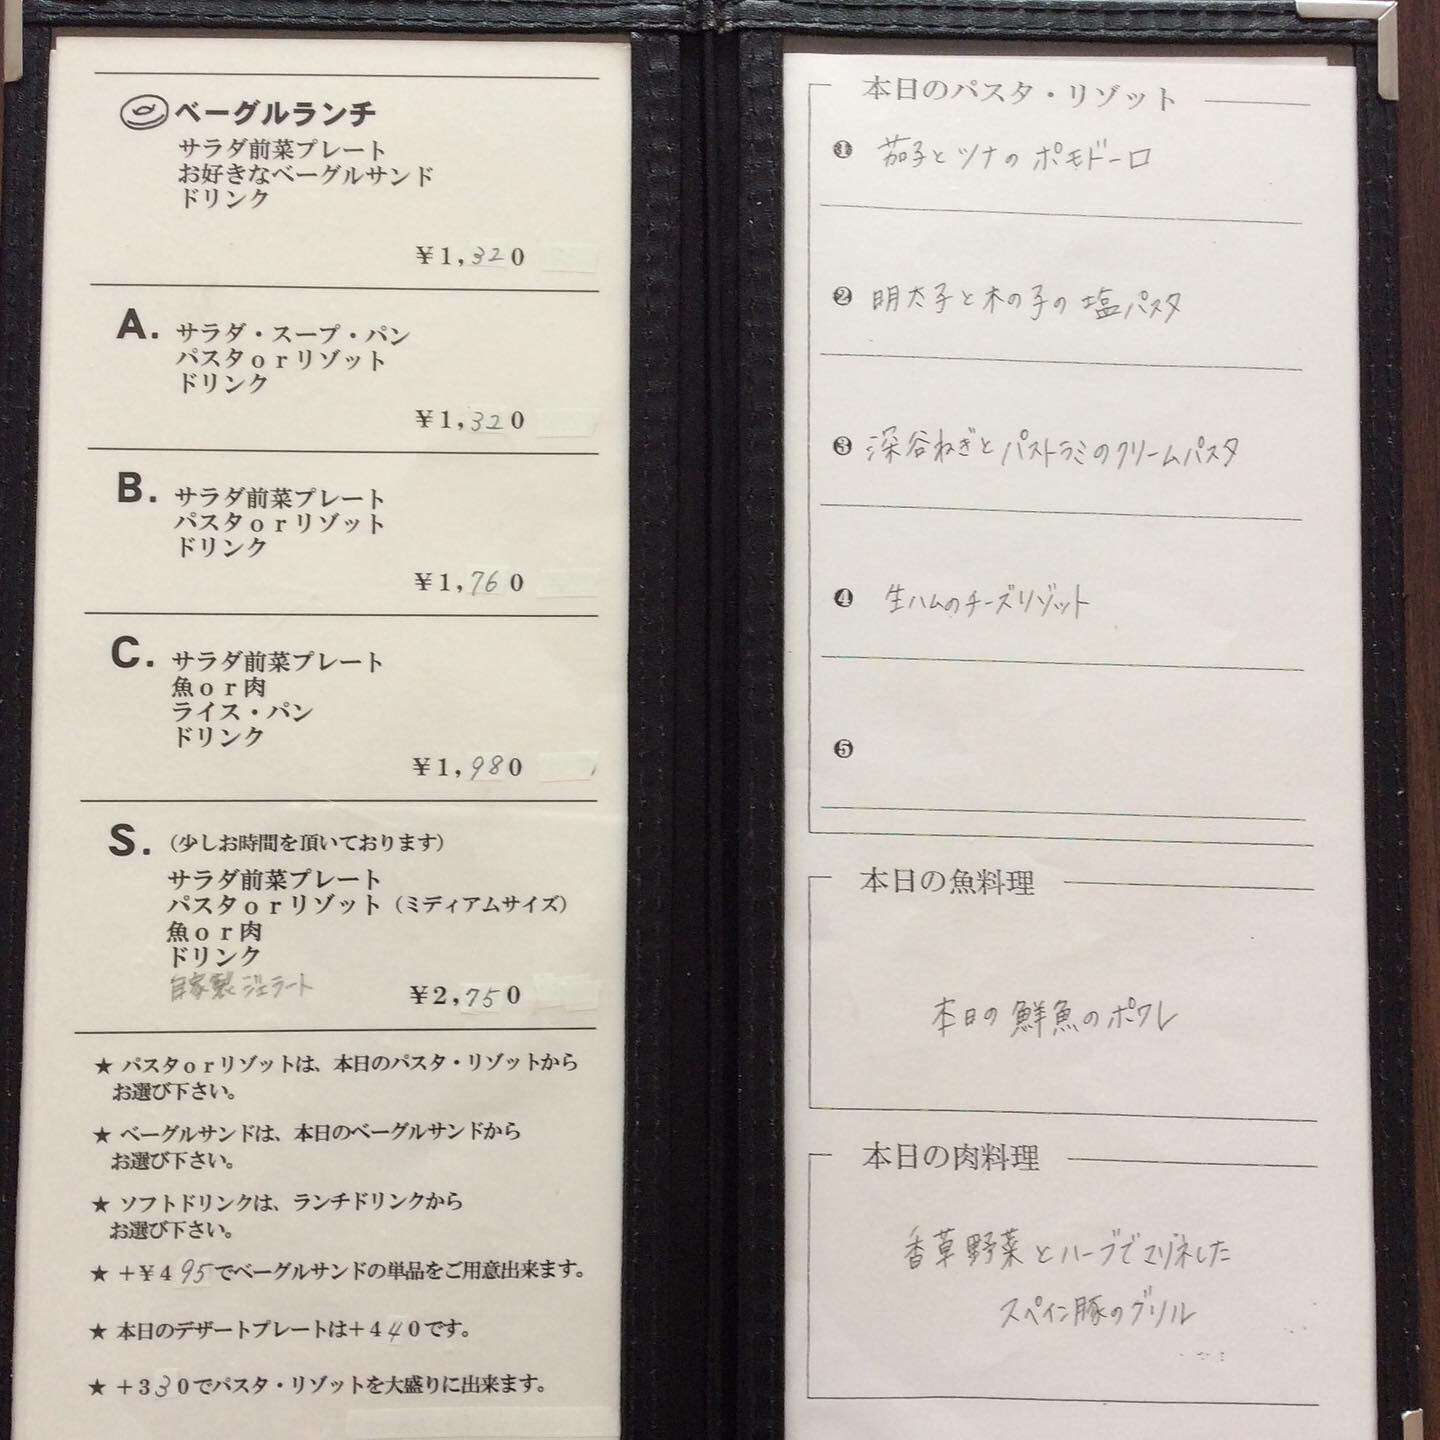 ベーグルランチ
サラダ前菜プレート
お好きなベーグルサンド
ドリンク
¥1,320
A. サラダ・スープ・パン
パスタorリゾット
ドリンク
¥1,320
B. サラダ前菜プレート
パスタorリゾット
ドリンク
¥1,760
C. サラダ前菜プレート
魚or肉
ライス・パン
ドリンク
¥1,980
S. (少しお時間を頂いております)
サラダ前菜プレート
パスタorリゾット(ミディアムサイズ)
魚or肉
ドリンク
自家製ジェラート
¥2,750
★ パスタorリゾットは、本日のパスタ・リゾットから
お選び下さい。
★ ベーグルサンドは、本日のベーグルサンドから
お選び下さい。
★ ソフトドリンクは、ランチドリンクから
お選び下さい。
★ +¥495でベーグルサンドの単品をご用意出来ます。
★ 本日のデザートプレートは+440です。
★ +330でパスタ・リゾットを大盛りに出来ます。
本日のパスタ・リゾット
❶ 茄子とツナのポモドーロ
❷ 明太子と木の子の塩パスタ
❸ 深谷ねぎとパストラミのクリームパスタ
❹ 生ハムのチーズリゾット
❺
本日の魚料理
本日の鮮魚のポワレ
本日の肉料理
香草野菜とハーブでマリネした
スペイン豚のグリル